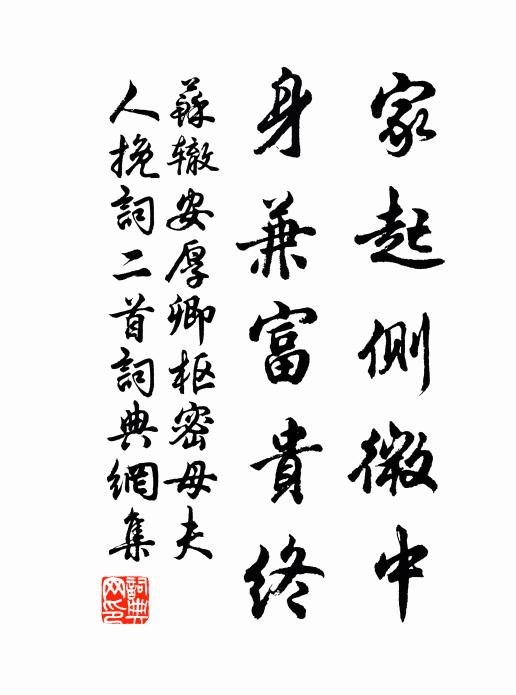 家起側微中
身兼富貴終
蘇轍安厚卿枢密母夫
人挽詞二首詞典網集